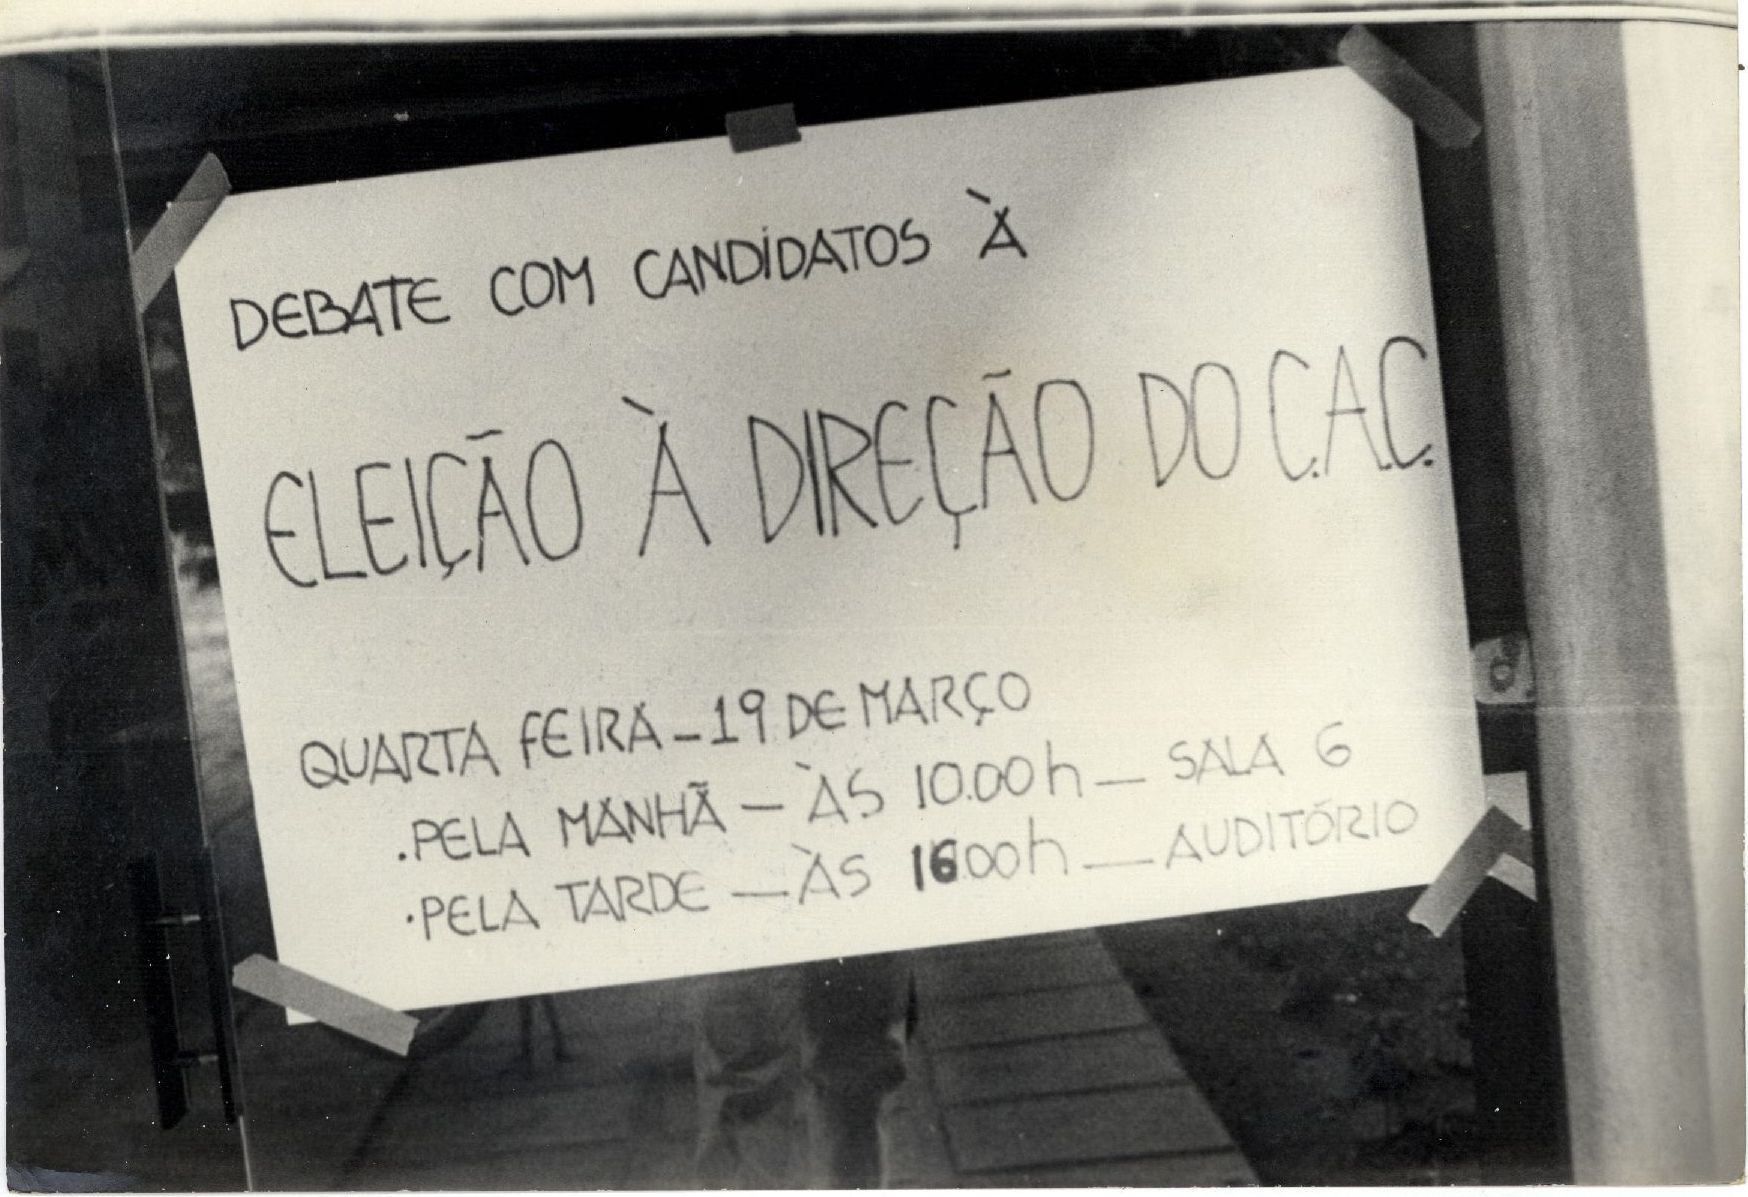 DEBATE COM CANDIDATOS À
ELEIÇÃO À DIREÇÃO DO C.A.C.
QUARTA FEIRA - 19 DE MARÇO
. PELA MANHÃ - ÀS 10.00h - SALA 6
. PELA TARDE - ÀS 16.00h - AUDITÓRIO